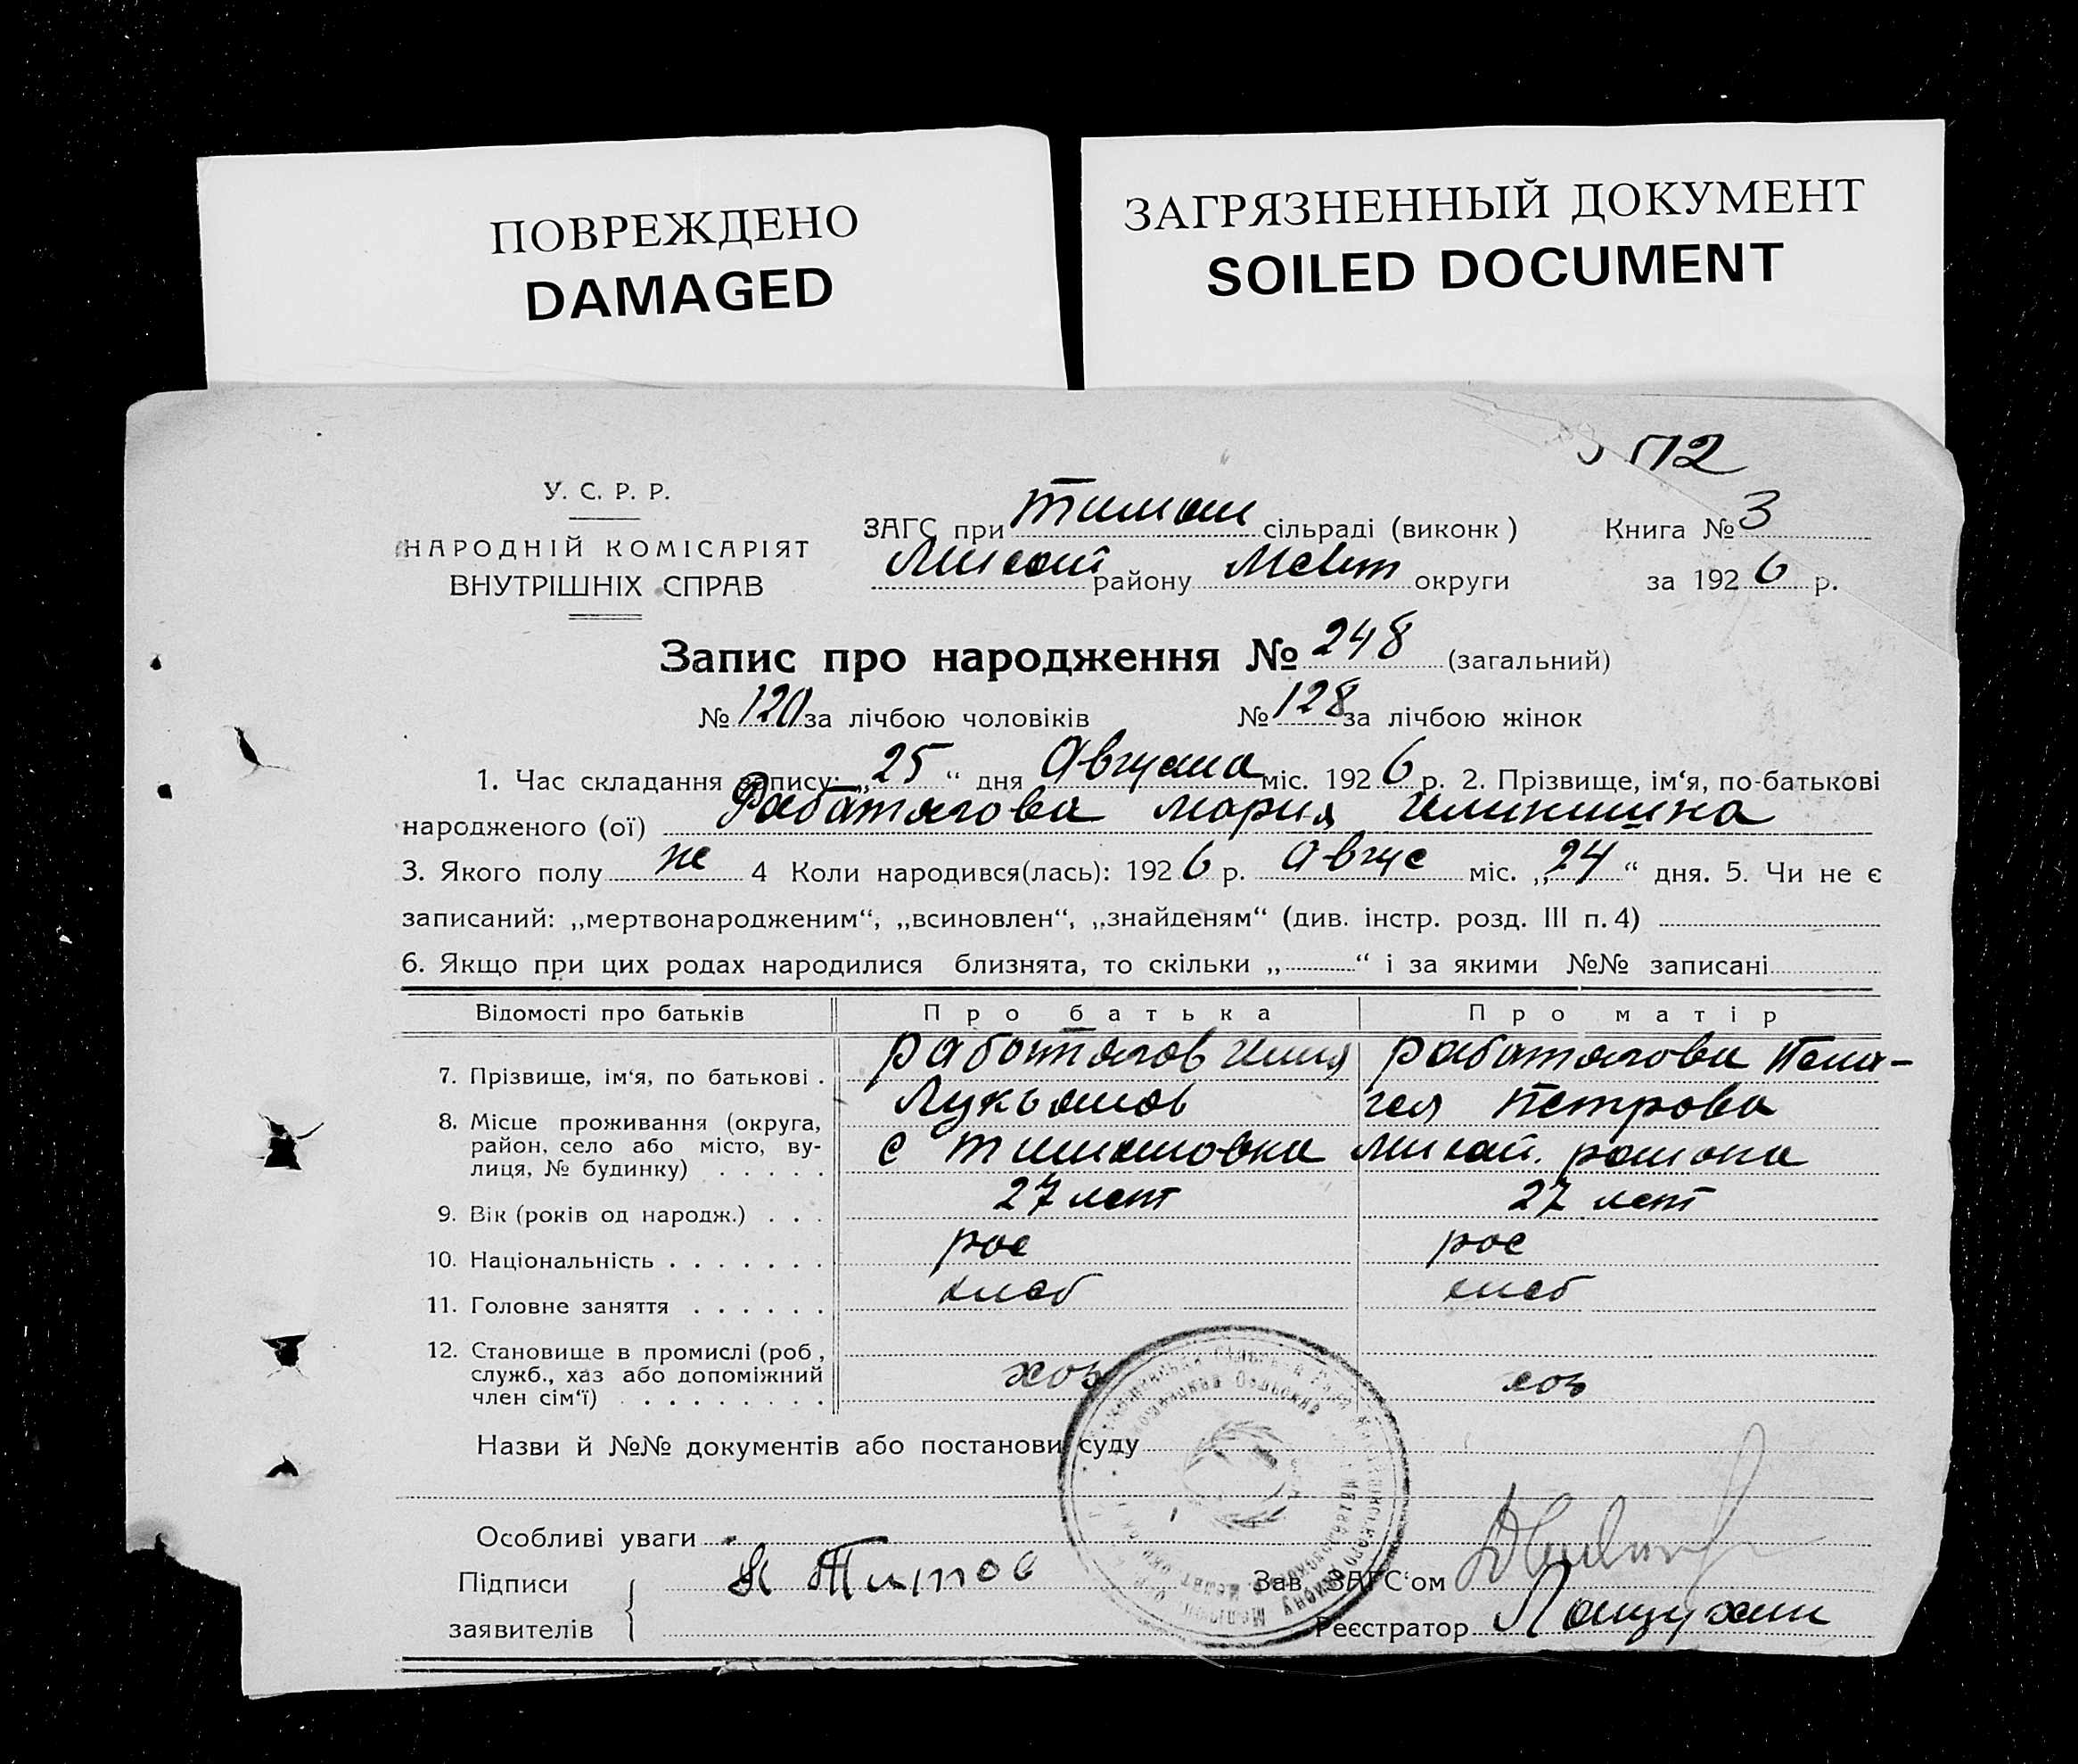 ПОВРЕЖДЕНО
DAMAGED
ЗАГРЯЗНЕННЫЙ ДОКУМЕНТ
SOILED DOCUMENT
У. С. Р. Р.
НАРОДНІЙ КОМІСАРІЯТ
ВНУТРІШНІХ СПРАВ
ЗАГС при Тимош сільраді (виконк)
района округи Мелит
Книга № 3
за 1926 р.
Запис про народження № 248 (загальний)
№ 120 за лічбою чоловіків № 128 за лічбою жінок
1. Час складання запису: „25“ дня Августа міс. 1926 р. 2. Прізвище, ім‘я, по-батькові
народженого (ої) Работягова Мария
3. Якого полу ж 4 Коли народився(лась): 1926 р. Авгус міс. „24“ дня. 5. Чи не є
записаний: „мертвонародженим“, „всиновлен“, „знайденям“ (див. інстр. розд. III п. 4)
6. Якщо при цих родах народилися близнята, то скільки „ “ і за якими №№ записані
Відомості про батьків Про батька Про матір
7. Прізвище, ім‘я, по батькові . Работягов Илья Работягова Пела-
Лукьянов гея Петрова
8. Місце проживання (округа,
район, село або місто, ву-
лиця, № будинку) . . . . . с Тимошовка Михай. района
9. Вік (років од народж.) . . . 27 лет 27 лет
10. Національність . . . . . . . рос рос
11. Головне заняття . . . . . . хлеб хлеб
12. Становище в промислі (роб,
служб., хаз або допоміжний
член сім‘ї) . . . . . . . . . хоз хоз
Назви й №№ документів або постанови суду
Особливі уваги
Підписи
заявителів
Титов
Зав. ЗАГС‘ом
Реєстратор